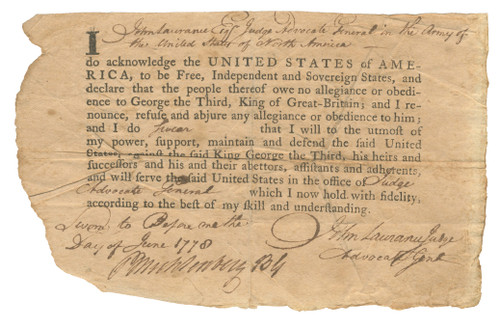 I John Laurance Esq Judge Advocate General in the Army of
the United States of North America
do acknowledge the UNITED STATES of AME-
RICA, to be Free, Independent and Sovereign States, and
declare that the people thereof owe no allegiance or obedi-
ence to George the Third, King of Great-Britain; and I re-
nounce, refuse and abjure any allegiance or obedience to him;
and I do Swear that I will to the utmost of
my power, support, maintain and defend the said United
States, against the said King George the Third, his heirs and
successors and his and their abettors, assistants and adherents,
and will serve the said United States in the office of Judge
Advocate General which I now hold with fidelity,
according to the best of my skill and understanding.
Sworn to Before me the
Day of June 1778
John Laurance Judge
Advocate Genl
PMuhlenberg BG